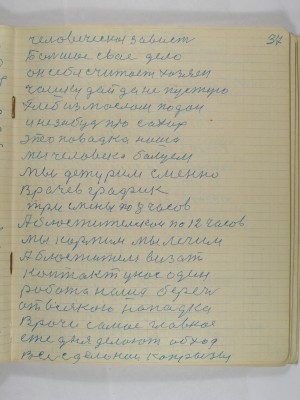 37
человеческая завист
Большое свае дело
он себя считает хозяен
чашку дай да не пустую
хлеб измаслом подай
и незабудь про сахар
это повадка наша
мы человека балуем
мы детурим сменно
Врачев график
три смены по 8 часов
А блюстителжам по 12 часов
мы кормим мы лечим
А блюстители визат
контакт у нас один
работа наша береч
от всякого нападка
Врачи самое главное
еже дня делают обход